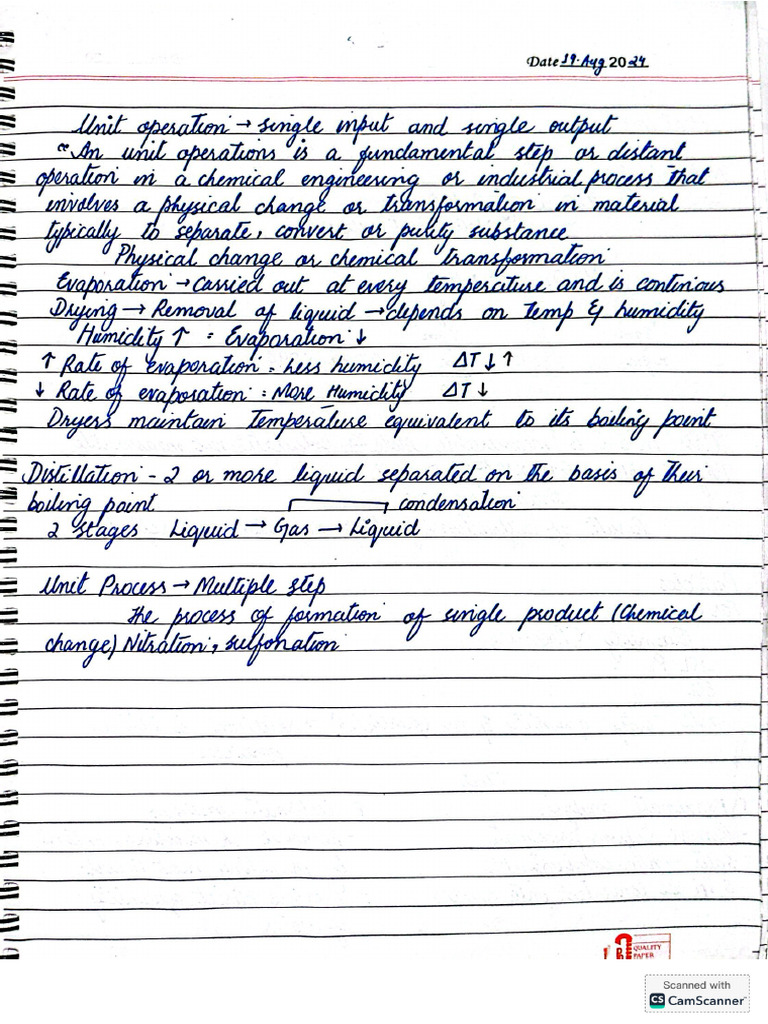 Date 19·Aug 2024
Unit operation → single input and single output
"An unit operations is a fundamental step or distant
operation in a chemical engineering or industrial process that
involves a physical change or transformation in material
typically to separate, convert or purity substance
Physical change or chemical transformation
Evaporation → Carried out at every temperature and is continous
Drying → Removal of liquid → depends on Temp & humidity
Humidity ↑ = Evaporation ↓
↑ Rate of evaporation = Less humidity ΔT ↓ ↑
↓ Rate of evaporation = More Humidity ΔT ↓
Dryers maintain Temperature equivalent to its boiling point
Distillation - 2 or more liquid separated on the basis of their
boiling point condensation
2 stages Liquid → Gas → Liquid
Unit Process → Multiple step
The process of formation of single product (Chemical
change) Nitration, sulfonation
QUALITY
PAPER
Scanned with
CS CamScanner